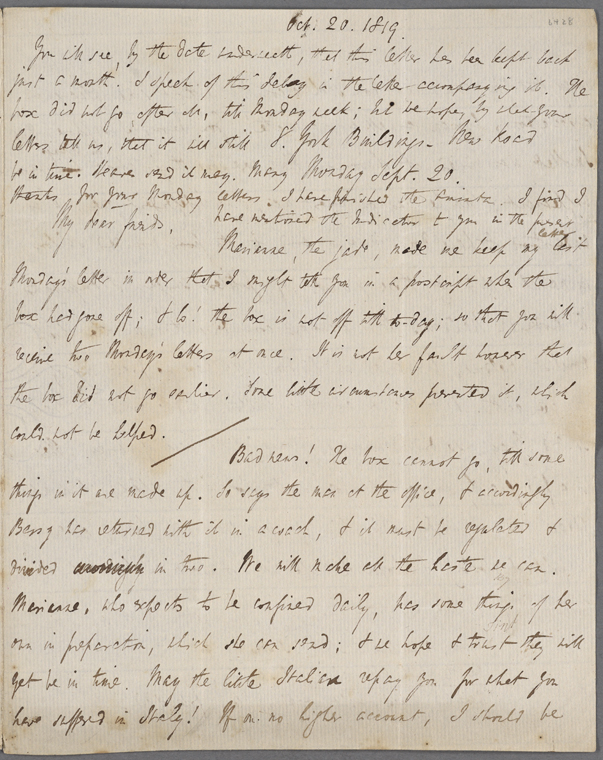 Oct. 20. 1819.
You will see, by the date underneath, that this letter has been kept back
just a month. I speak of this delay in the letter accompanying it. The
box did not go after all, till Monday week; but we hope, by what your
letters tell us, that it will still 8. York Buildings - New Road
be in time. Heaven send it may. Many Monday Sept. 20.
thanks for your Monday letters. I have finished the Aminta. I find I
My dear friends, have mentioned the Indicator to you in the present
letter
Marianne, the jade, made me keep my last
Monday's letter in order that I might tell you in a postscript when the
box had gone off; & lo! the box is not off till to-day; so that you will
receive two Monday's letters at once. It is not her fault however that
the box did not go earlier. Some little circumstances prevented it, which
could not be helped.
Bad news! The box cannot go, till some
things in it are made up. So says the man at the office, & accordingly
Bessy has returned with it in a coach, & it must be regulated &
divided accordingly in two. We will make all the haste we can.
Marianne, who expects to be confined daily, has some things of her
own in preparation, which she can send; & we hope & trust they will
yet be in time. May the little Italian repay you for what you
have suffered in Italy! If on no higher account, I should be